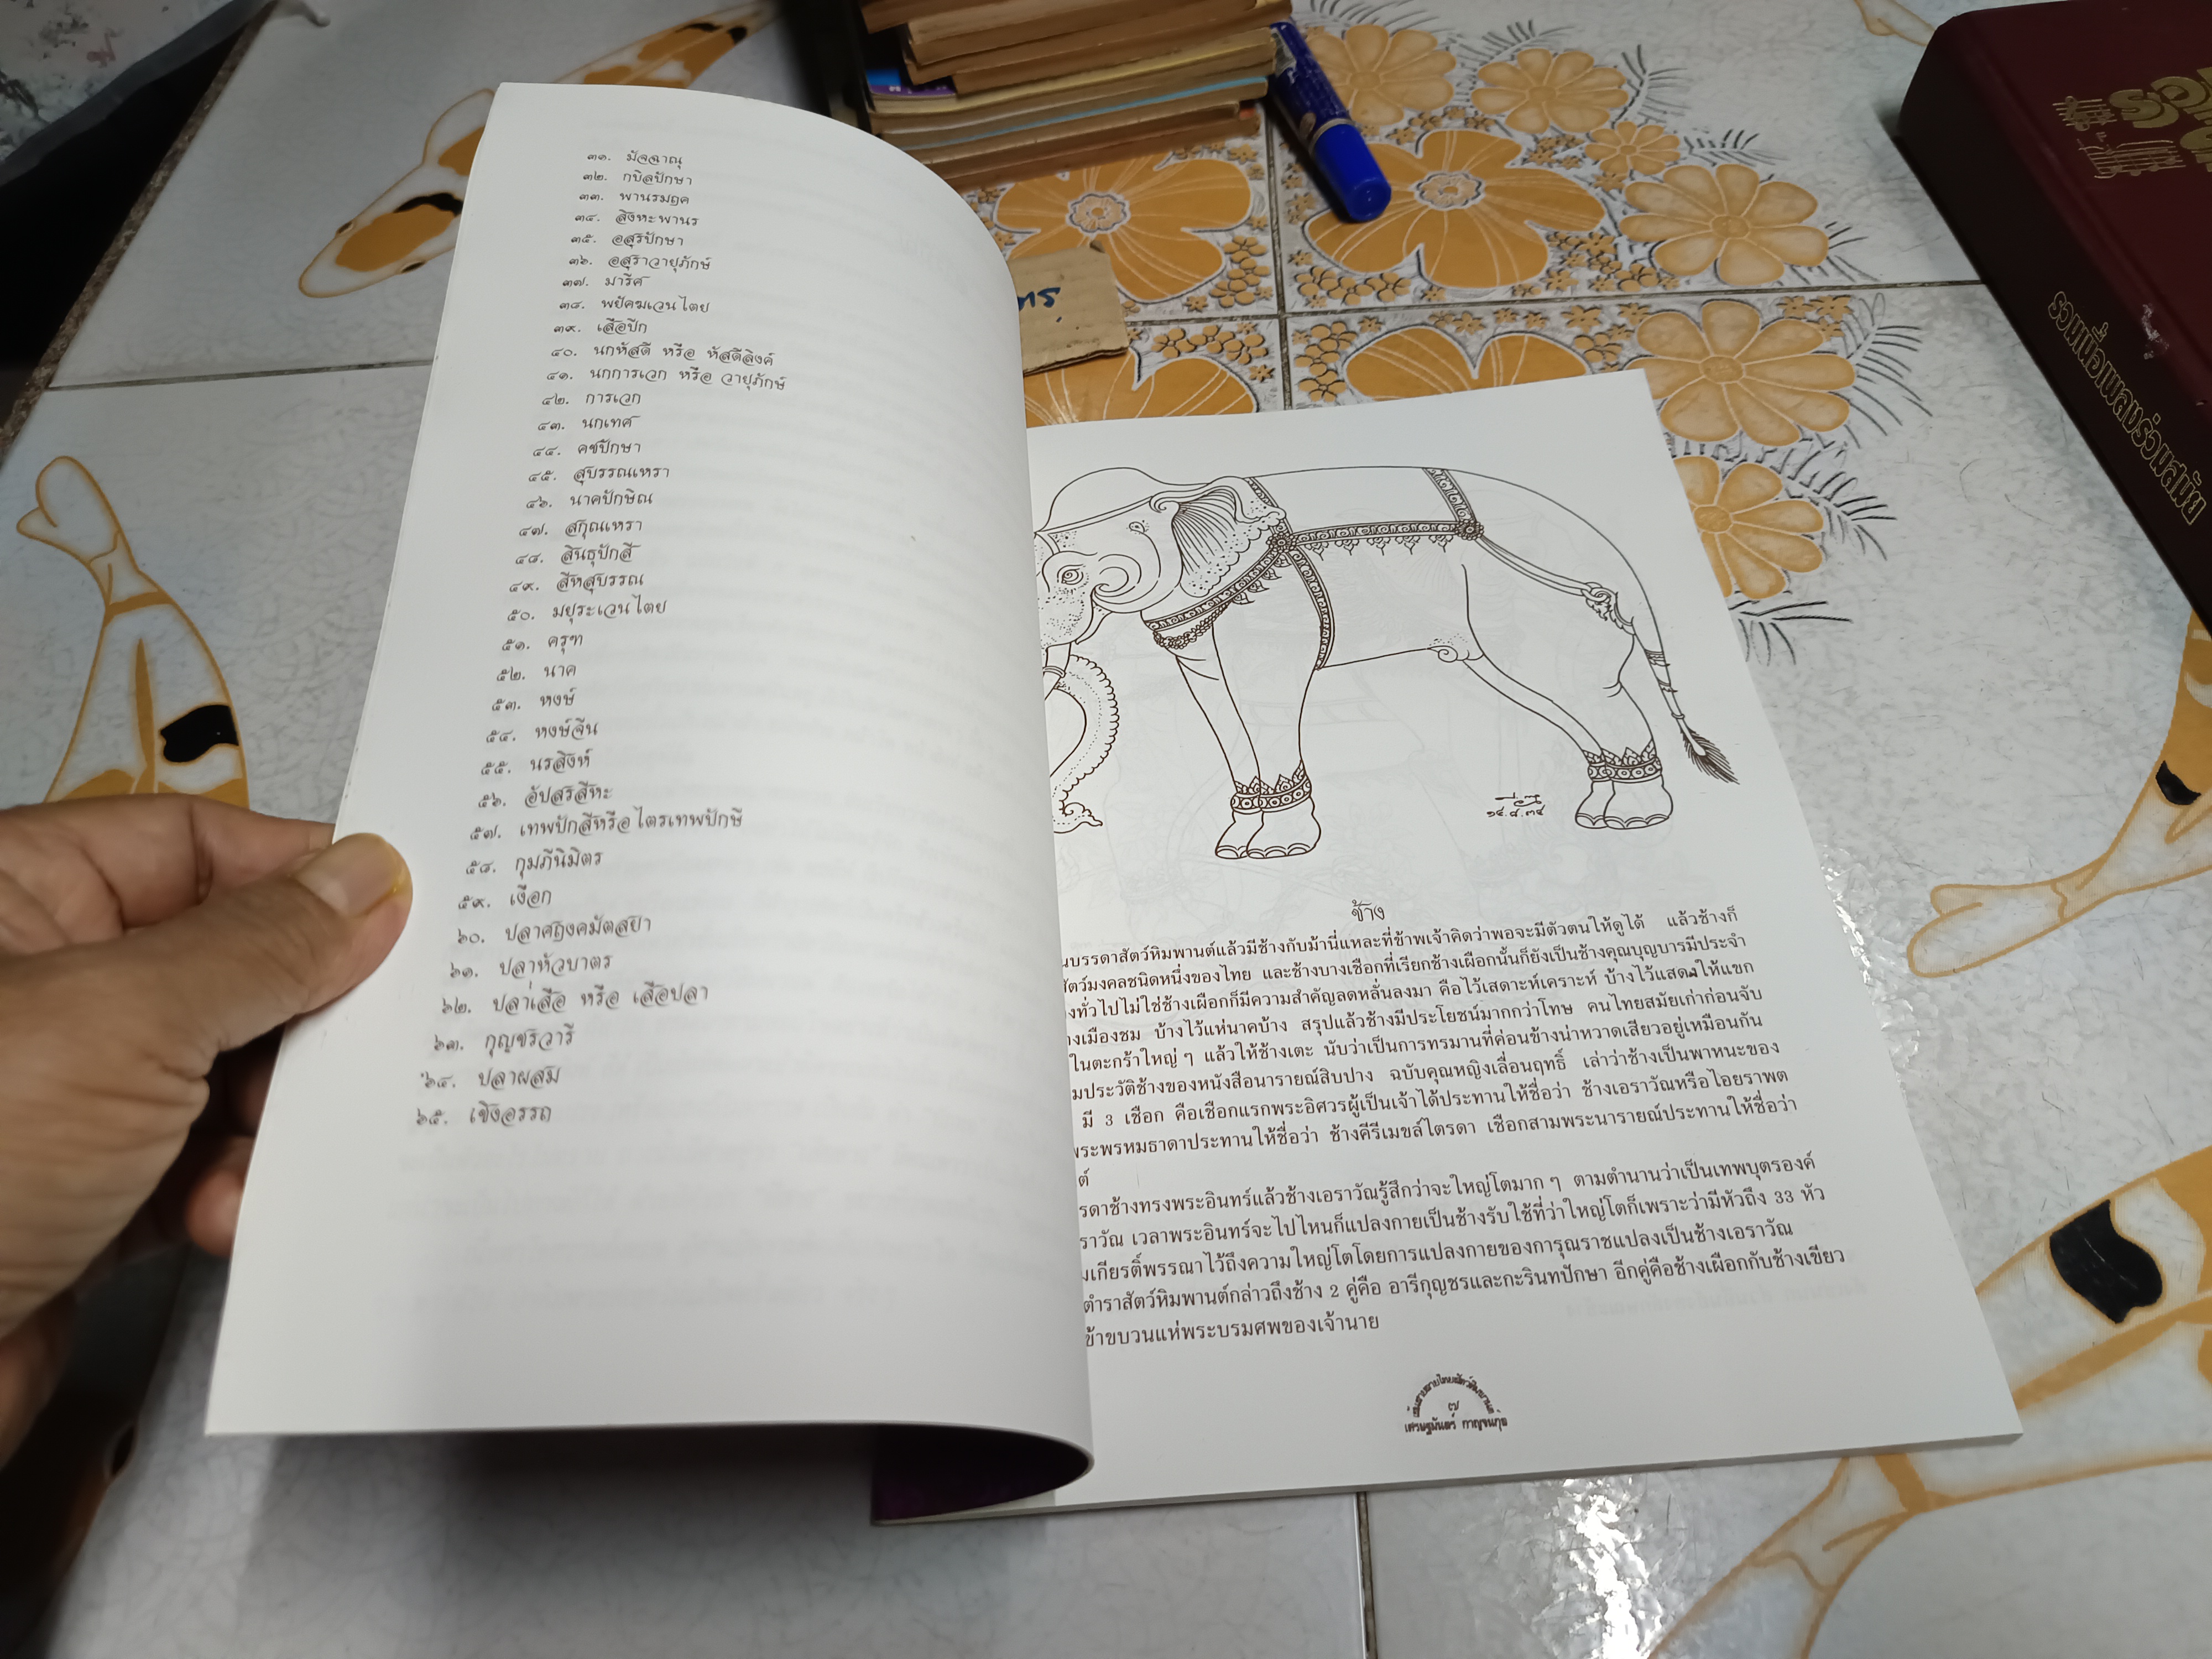 ๓๑. มัจฉาณุ
๓๒. กบิลปักษา
๓๓. พานรมฤค
๓๔. สิงหะพานร
๓๕. อสุรปักษา
๓๖. อสุราวายุภักษ์
๓๗. มารีศ
๓๘. พยัคฆเวนไตย
๓๙. เสือปีก
๔๐. นกหัสดี หรือ หัสดีลิงค์
๔๑. นกการเวก หรือ วายุภักษ์
๔๒. การเวก
๔๓. นกเทศ
๔๔. คชปักษา
๔๕. สุบรรณเหรา
๔๖. นาคปักษิณ
๔๗. สกุณเหรา
๔๘. สินธุปักสี
๔๙. สีหสุบรรณ
๕๐. มยุระเวนไตย
๕๑. ครุฑ
๕๒. นาค
๕๓. หงษ์
๕๔. หงษ์จีน
๕๕. นรสิงห์
๕๖. อัปสรสีหะ
๕๗. เทพปักสีหรือไตรเทพปักษี
๕๘. กุมภีนิมิตร
๕๙. เงือก
๖๐. ปลาศฤงคมัตสยา
๖๑. ปลาหัวบาตร
๖๒. ปลาเสือ หรือ เสือปลา
๖๓. กุญชรวารี
๖๔. ปลาผสม
๖๕. เชิงอรรถ
๑๔.๘.๓๔
ช้าง
นบรรดาสัตว์หิมพานต์แล้วมีช้างกับม้านี่แหละที่ข้าพเจ้าคิดว่าพอจะมีตัวตนให้ดูได้ แล้วช้างก็
สัตว์มงคลชนิดหนึ่งของไทย และช้างบางเชือกที่เรียกช้างเผือกนั้นก็ยังเป็นช้างคุณบุญบารมีประจำ
งทั่วไปไม่ใช่ช้างเผือกก็มีความสำคัญลดหลั่นลงมา คือไว้เสดาะห์เคราะห์ บ้างไว้แสดงให้แขก
างเมืองชม บ้างไว้แห่นาคบ้าง สรุปแล้วช้างมีประโยชน์มากกว่าโทษ คนไทยสมัยเก่าก่อนจับ
ในตะกร้าใหญ่ๆ แล้วให้ช้างเตะ นับว่าเป็นการทรมานที่ค่อนข้างน่าหวาดเสียวอยู่เหมือนกัน
มประวัติช้างของหนังสือนารายณ์สิบปาง ฉบับคุณหญิงเลื่อนฤทธิ์ เล่าว่าช้างเป็นพาหนะของ
มี 3 เชือก คือเชือกแรกพระอิศวรผู้เป็นเจ้าได้ประทานให้ชื่อว่า ช้างเอราวัณหรือไอยราพต
พระพรหมธาดาประทานให้ชื่อว่า ช้างคีรีเมขล์ไตรดา เชือกสามพระนารายณ์ประทานให้ชื่อว่า
ต์
รดาช้างทรงพระอินทร์แล้วช้างเอราวัณรู้สึกว่าจะใหญ่โตมากๆ ตามตำนานว่าเป็นเทพบุตรองค์
ราวัณ เวลาพระอินทร์จะไปไหนก็แปลงกายเป็นช้างรับใช้ที่ว่าใหญ่โตก็เพราะว่ามีหัวถึง 33 หัว
มเกียรติ์พรรณาไว้ถึงความใหญ่โตโดยการแปลงกายของการุณราชแปลงเป็นช้างเอราวัณ
ตำราสัตว์หิมพานต์กล่าวถึงช้าง 2 คู่คือ อารีกุญชรและกะรินทปักษา อีกคู่คือช้างเผือกกับช้างเขียว
ข้าขบวนแห่พระบรมศพของเจ้านาย
๗
เศรษฐมันตร์ กาญจนกุล
รวมเนื้อเพลงร่วมสมัย